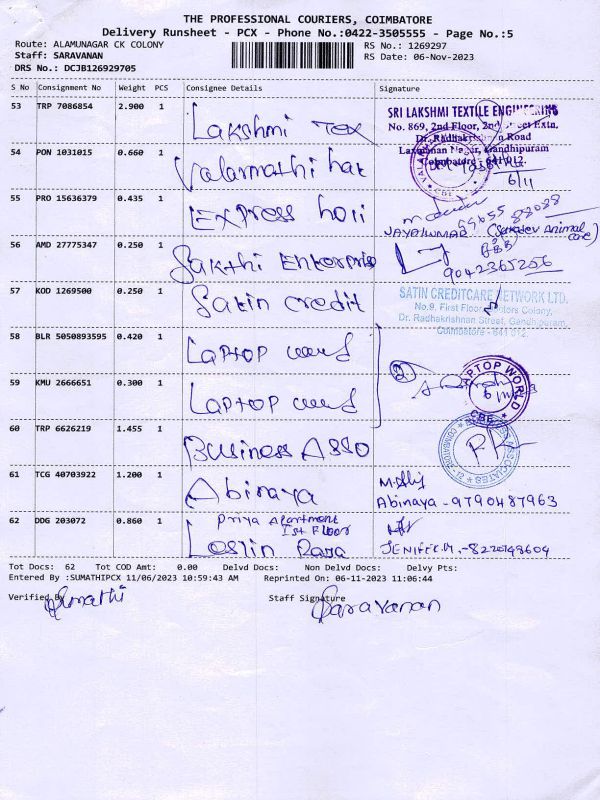 THE PROFESSIONAL COURIERS, COIMBATORE
Delivery Runsheet - PCX - Phone No.:0422-3505555 - Page No.:5
Route: ALAMUNAGAR CK COLONY
RS No.: 1269297
Staff: SARAVANAN
RS Date: 06-Nov-2023
DRS No.: DCJB126929705
S No Consignment No Weight PCS Consignee Details Signature
53 TRP 7086854 2.900 1 Lakshmi Tex
SRI LAKSHMI TEXTILE ENGINEERING
No. 869, 2nd Floor, 2nd Street Extn.
Dr. Radhakrishnan Road
Gandhipuram
Coimbatore - 641 012.
54 PON 1031015 0.660 1 Valarmathi
6/11
55 PRO 15636379 0.435 1 Express
JAYAKUMAR
56 AMD 27775347 0.250 1 Sakthi Enterprise
9042365256
57 KOD 1269500 0.250 1 Satin Credit
SATIN CREDITCARE NETWORK LTD.
No.9, First Floor, Colony,
Dr. Radhakrishnan Street, Gandhipuram,
Coimbatore - 641 012.
58 BLR 5050893595 0.420 1 Laptop
59 KMU 2666651 0.300 1 Laptop
LAPTOP WORLD
CBE
60 TRP 6626219 1.455 1 Business Asso
ASSOCIATES
61 TCG 40703922 1.200 1 Abinaya
Abinaya - 9790487963
62 DDG 203072 0.860 1 Priya Apartment
Ist Floor
Lostin Rasa
JENIFER.M.-8220148604
Tot Docs: 62 Tot COD Amt: 0.00 Delvd Docs: Non Delvd Docs: Delvy Pts:
Entered By :SUMATHIPCX 11/06/2023 10:59:43 AM Reprinted On: 06-11-2023 11:06:44
Verified By
Staff Signature
Saravanan